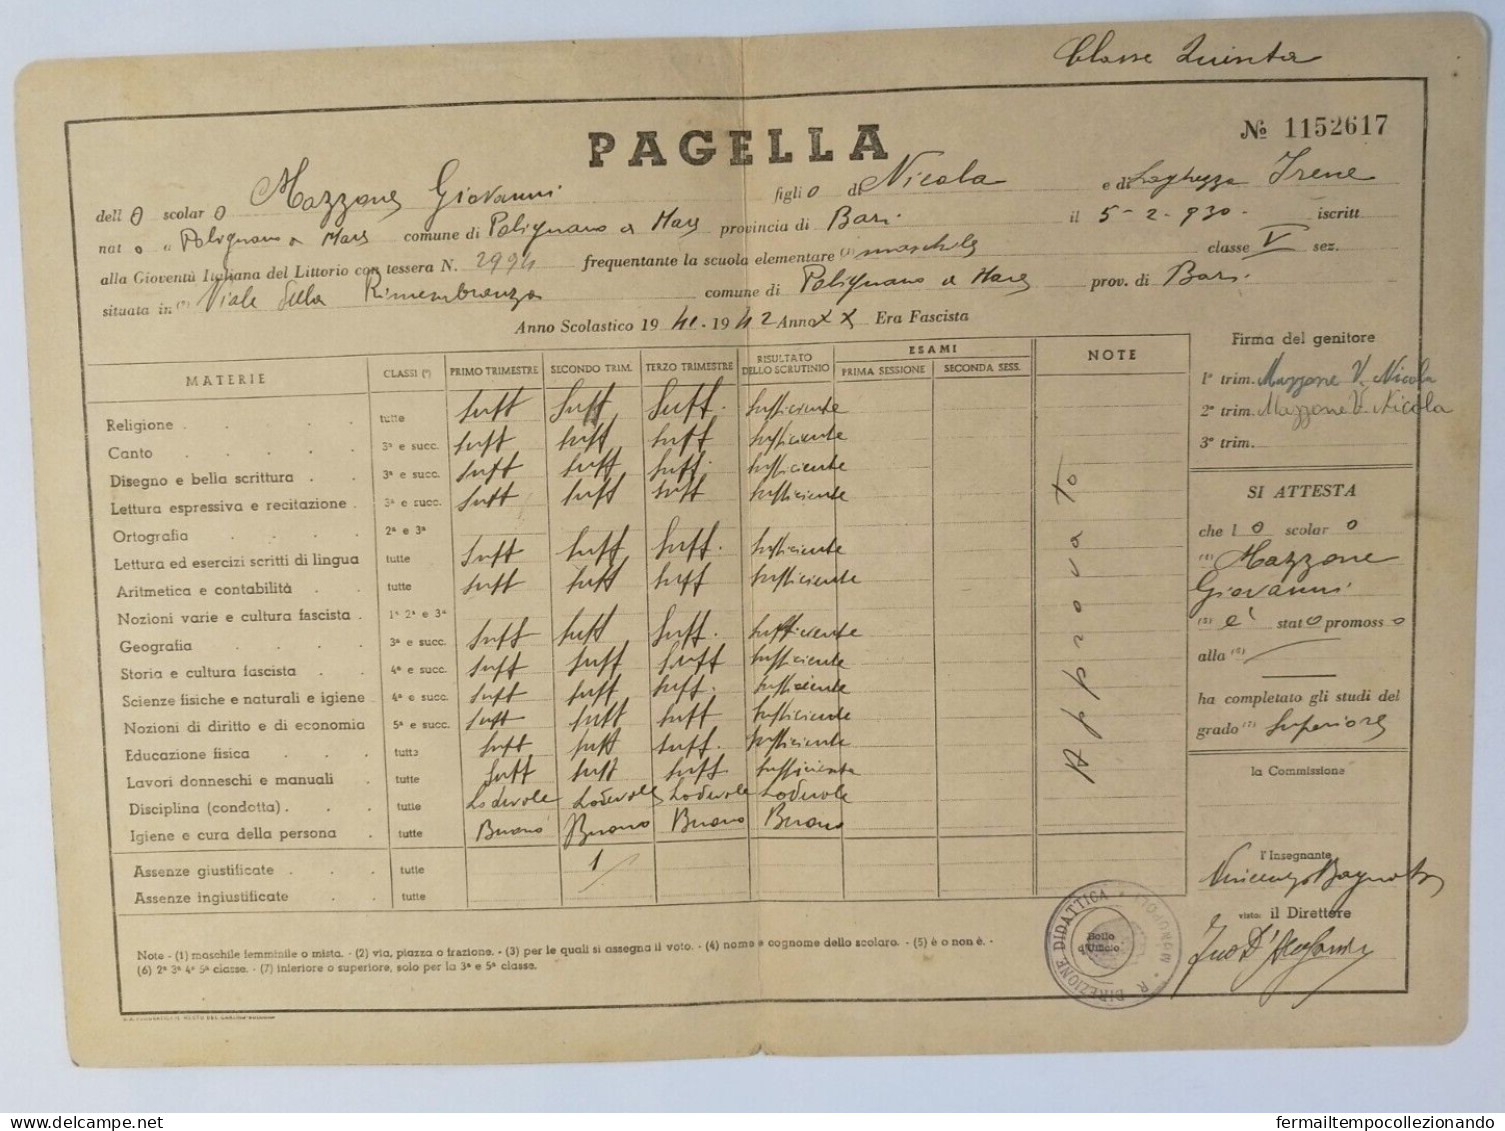 Classe Quinta
PAGELLA
№ 1152617
dell o scolar o Mazzone Giovanni figlio di Nicola e di Irene
nat o a Polignano a Mare comune di Polignano a Mare provincia di Bari il 5-2-930. iscritt
alla Gioventù Italiana del Littorio con tessera N. 2994 frequentante la scuola elementare (1) maschile classe V sez.
situata in (2) Viale della Rimembranza comune di Polignano a Mare prov. di Bari
Anno Scolastico 19 41 - 19 42 Anno XX Era Fascista
MATERIE CLASSI (3) PRIMO TRIMESTRE SECONDO TRIM. TERZO TRIMESTRE RISULTATO DELLO SCRUTINIO ESAMI PRIMA SESSIONE SECONDA SESS. NOTE
Religione tutte suff suff suff. sufficiente
Canto 3ª e succ. suff suff suff sufficiente
Disegno e bella scrittura 3ª e succ. suff suff suff. sufficiente
Lettura espressiva e recitazione 3ª e succ. suff suff suff sufficiente
Ortografia 2ª e 3ª
Lettura ed esercizi scritti di lingua tutte suff suff suff. sufficiente
Aritmetica e contabilità tutte suff suff suff sufficiente
Nozioni varie e cultura fascista 1ª 2ª e 3ª
Geografia 3ª e succ. suff suff suff. sufficiente
Storia e cultura fascista 4ª e succ. suff suff suff sufficiente
Scienze fisiche e naturali e igiene 4ª e succ. suff suff suff. sufficiente
Nozioni di diritto e di economia 5ª e succ. suff suff suff sufficiente
Educazione fisica tutte suff suff suff. sufficiente
Lavori donneschi e manuali tutte suff suff suff. sufficiente
Disciplina (condotta) tutte Lodevole Lodevole Lodevole Lodevole
Igiene e cura della persona tutte Buono Buono Buono Buono
Assenze giustificate tutte 1
Assenze ingiustificate tutte
Approvato
Firma del genitore
1º trim. Mazzone V. Nicola
2º trim. Mazzone V. Nicola
3º trim.
SI ATTESTA
che l o scolar o
(4) Mazzone
Giovanni
(5) è stat o promoss o
alla (6)
ha completato gli studi del
grado (7) superiore
la Commissione
l'Insegnante
Vincenzo
visto: il Direttore
R. DIREZIONE DIDATTICA
Bollo d'Ufficio
Note - (1) maschile femminile o mista. - (2) via, piazza o frazione. - (3) per le quali si assegna il voto. - (4) nome e cognome dello scolaro. - (5) è o non è. -
(6) 2ª 3ª 4ª 5ª classe. - (7) inferiore o superiore, solo per la 3ª e 5ª classe.
fermailtempocollezionando